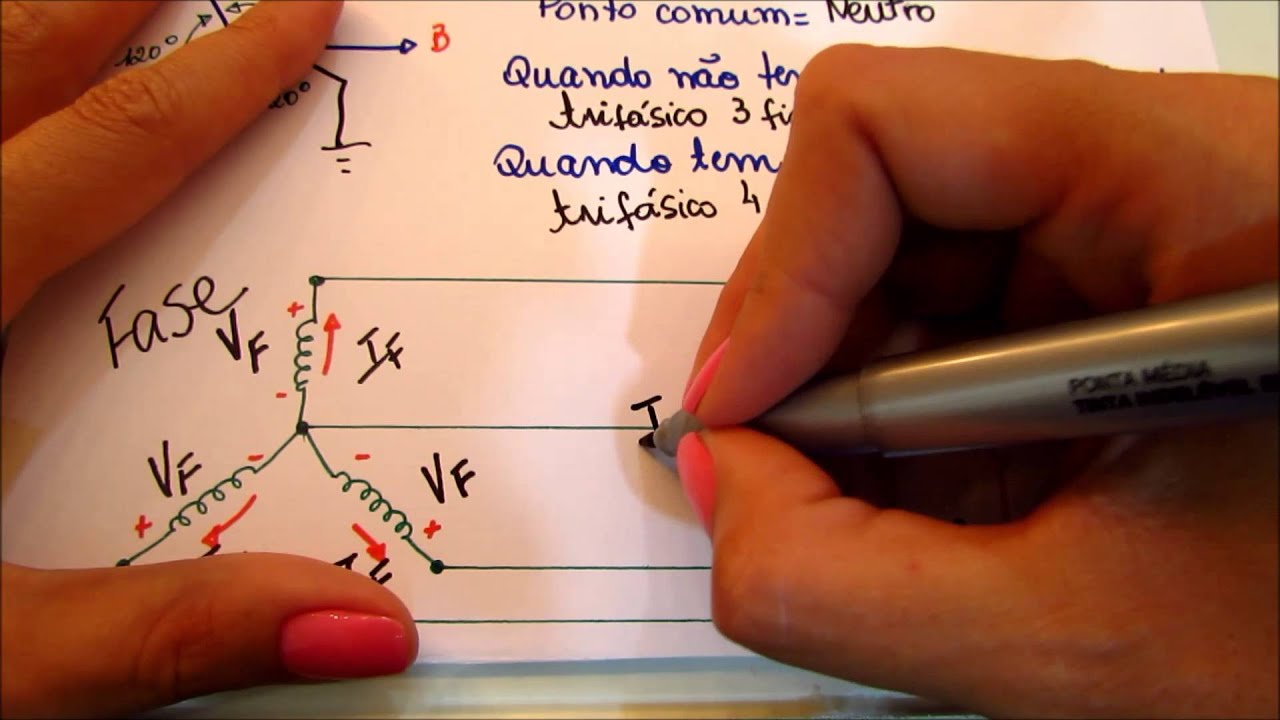 Ponto comum= Neutro
120°
B
Quando não
trifásico 3
Quando tem
trifásico 4
Fase
+
VF
IF
-
I
-
-
VF
VF
+
+
PONTA MÉDIA
TINTA